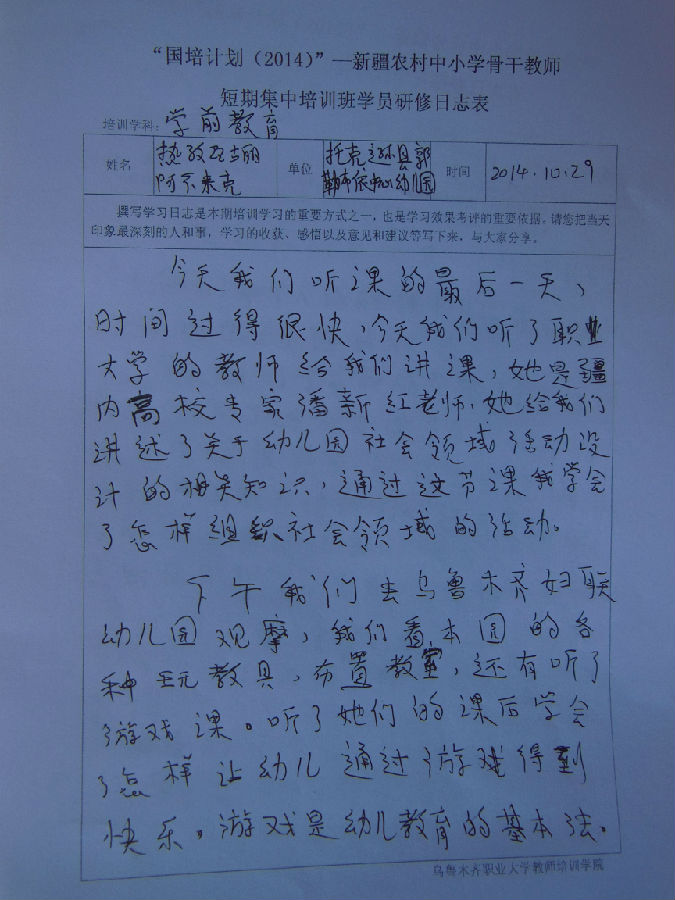 “国培计划（2014）”—新疆农村中小学骨干教师
短期集中培训班学员研修日志表
培训学科：学前教育
姓名 热孜古丽 单位 托克逊县郭 时间 2014.10.29
阿不来克 勒布依中心幼儿园
撰写学习日志是本期培训学习的重要方式之一，也是学习效果考评的重要依据。请您把当天
印象最深刻的人和事，学习的收获、感悟以及意见和建议等写下来，与大家分享。
今天我们听课的最后一天，
时间过得很快，今天我们听了职业
大学的教师给我们讲课，她是疆
内高校专家潘新红老师，她给我们
讲述了关于幼儿园社会领域活动设
计的相关知识，通过这节课我学会
了怎样组织社会领域的活动。
下午我们去乌鲁木齐妇联
幼儿园观摩，我们看本园的各
种玩教具，布置教室，还有听了
游戏课。听了她们的课后学会
了怎样让幼儿通过游戏得到
快乐。游戏是幼儿教育的基本法。
乌鲁木齐职业大学教师培训学院